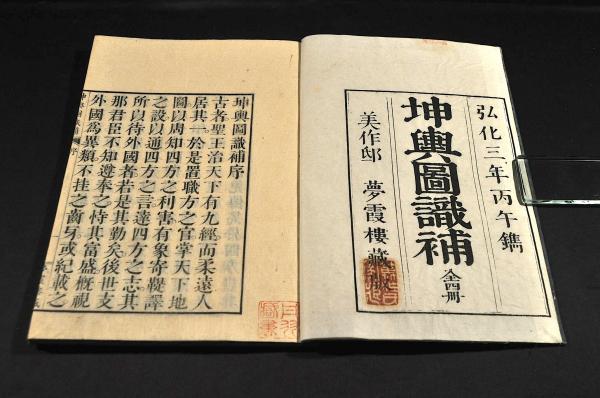 弘化三年丙午鐫
坤輿圖識補
全四册
美作邸 夢霞樓藏版
坤輿圖識補序
古者聖王治天下有九經而柔遠人
居其一於是置職方之官掌天下地
圖以周知四方之利害有象寄鞮譯
之設以通四方之言達四方之志其
所以待外國者若是其勤矣後世支
那君臣不知遵奉之恃其富盛概視
外國爲異類不挂之齒牙或紀載之